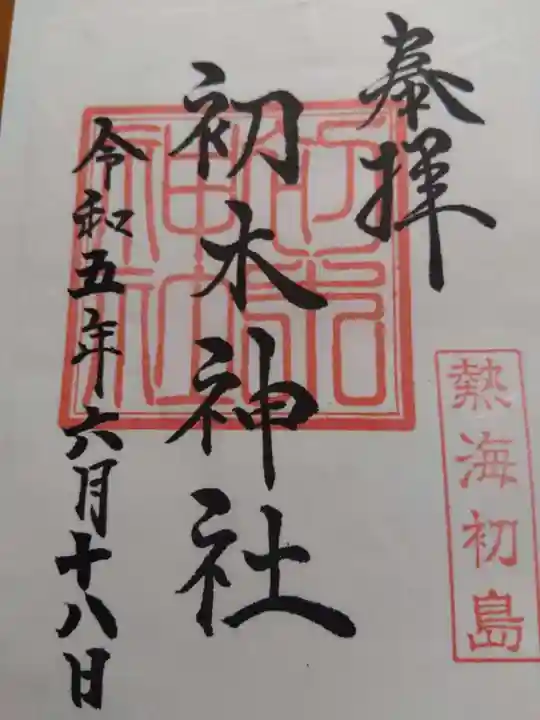 奉拝
熱海初島
初木神社
初木神社
令和五年六月十八日